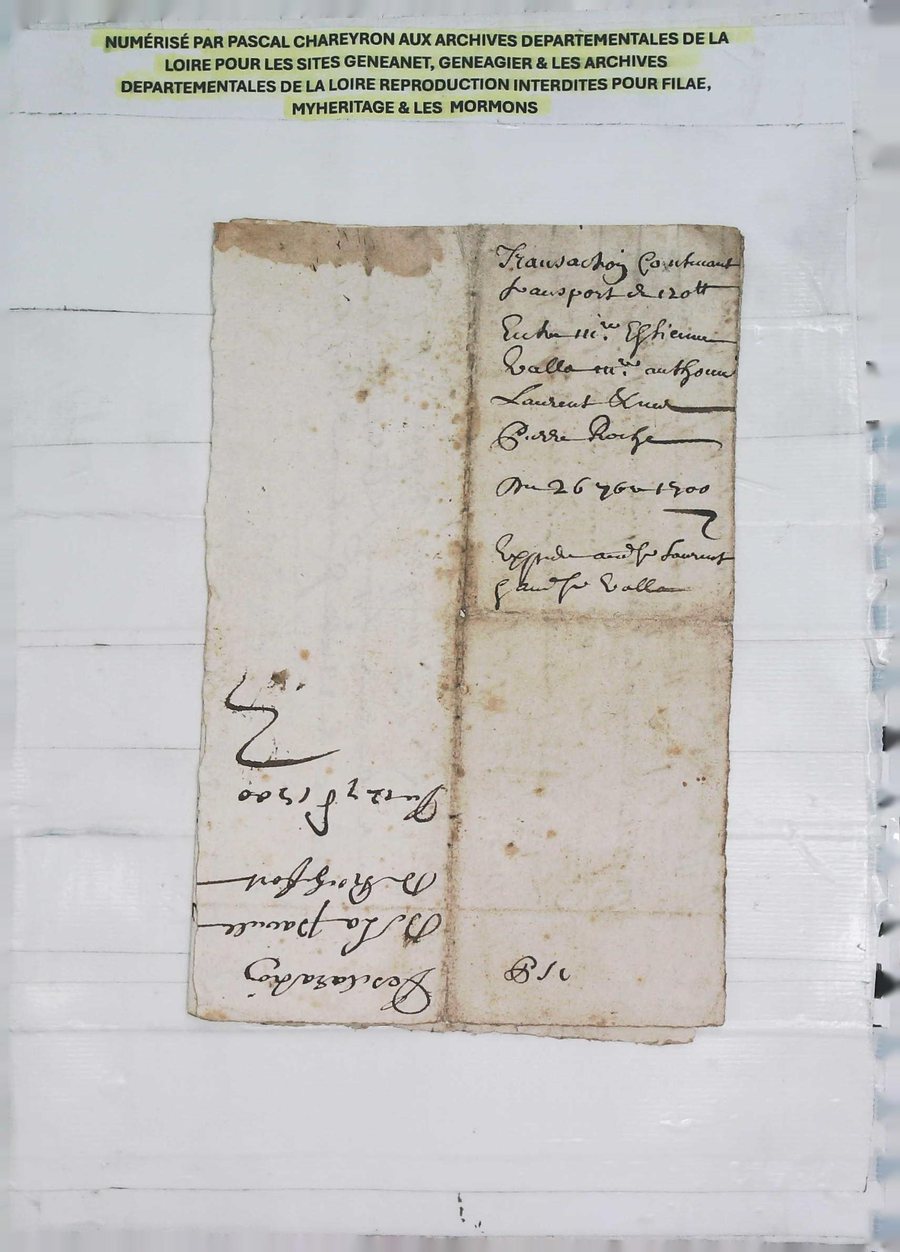 NUMÉRISÉ PAR PASCAL CHAREYRON AUX ARCHIVES DEPARTEMENTALES DE LA
LOIRE POUR LES SITES GENEANET, GENEAGIER & LES ARCHIVES
DEPARTEMENTALES DE LA LOIRE REPRODUCTION INTERDITES POUR FILAE,
MYHERITAGE & LES MORMONS
Transaction Contenant
transport de 120tt
Entre me. Estienne
Valla me. anthoine
Laurent &
Pierre Roche
Du 26 7bre 1700
Expedie audt sr Laurent
& audt sr Valla
Declaration
De La
De Rochefort
Du 1700